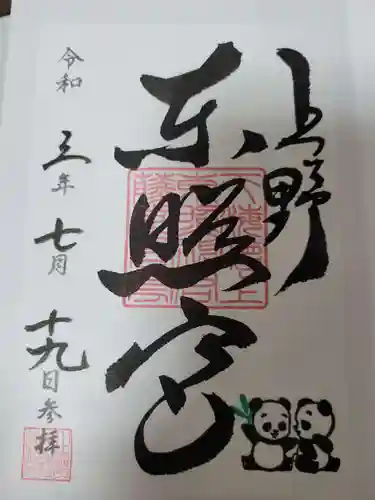 上野
東照宮
令和三年七月十九日参拝